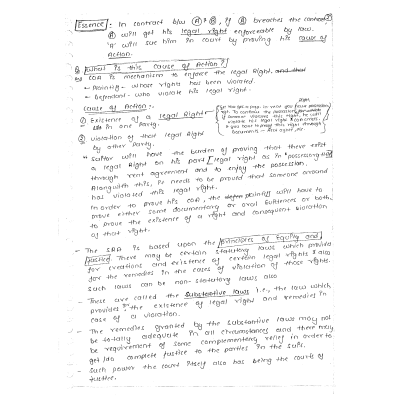 Essence: In contract b/w A & B, if B breaches the contract,
A will get his legal right enforceable by law.
'A' will sue him in court by proving his cause of
Action.
Q What is this cause of Action?
COA is mechanism to enforce the legal Right.
- Plaintiff - whose rights has been violated.
- Defendant - who violate his legal right.
Cause of Action:-
① Existence of a legal Right
in one Party
② violation of that legal Right
by other Party.
" Suitor will have the burden of proving that there exist
a legal Right on his part [legal right as in "possession
through rent agreement and to enjoy the possession.
Alongwith this, it needs to be proved that someone around
has violated this legal right.
In order to prove his COA, the plaintiff will have to
prove either some documentary or oral evidences or both
to prove the existence of a right and consequent violation
of that right.
- The SRA is based upon the principles of Equity and
Justice. There may be certain statutory laws which provide
for creations and existence of certain legal rights & also
for the remedies in the cases of violation of those rights.
Such laws can be non-statutory laws also
- These are called the Substantive laws i.e., the law which
provides the existence of legal right and remedies in
case of a violation.
- The remedies granted by the substantive laws may not
be totally adequate in all circumstances and there may
be requirement of some complementary relief in order to
get/do complete justice to the parties in the suit.
- Such power the court itself also has being the courts of
justice.